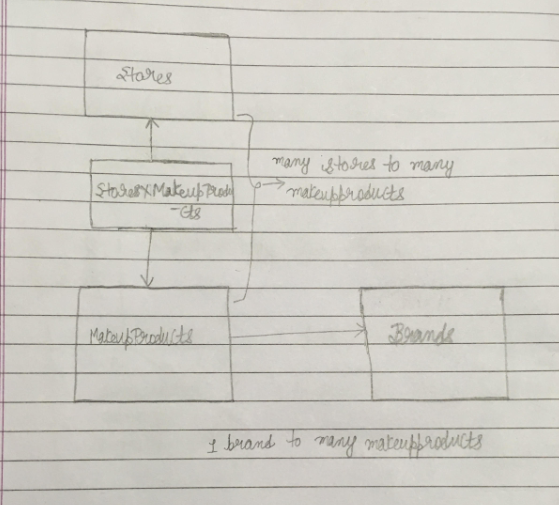 Stores
many stores to many
makeupproducts
StoresXMakeupProdu
-cts
MakeupProducts
Brands
1 brand to many makeupproducts